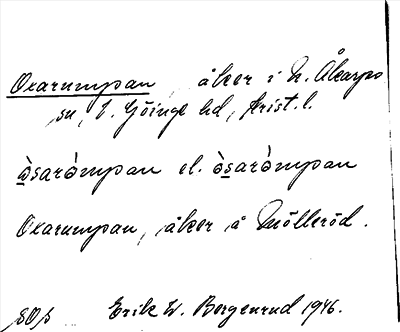 Oxarumpan, åker i N. Åkarps
sn, V. Göinge hd, Krist. l.
òsaròmpan el. òsaròmpan
Oxarumpan, åker å Mölleröd.
Erik W. Bergenrud 1946.